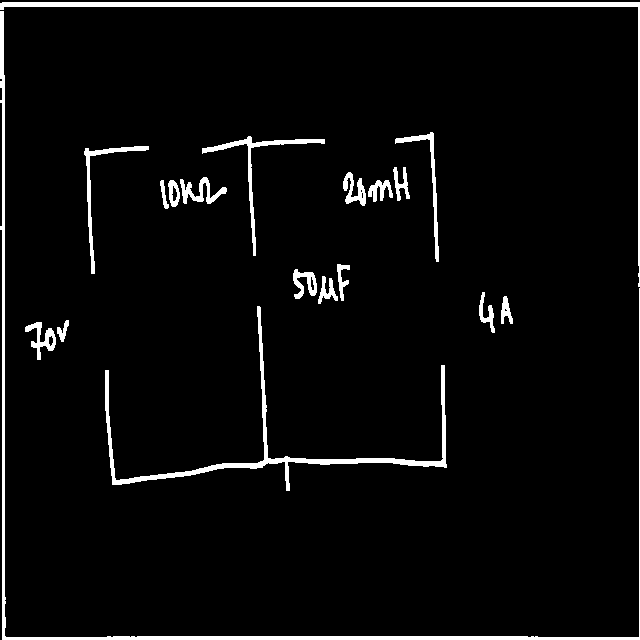 10kΩ
20mH
50μF
70v
4A